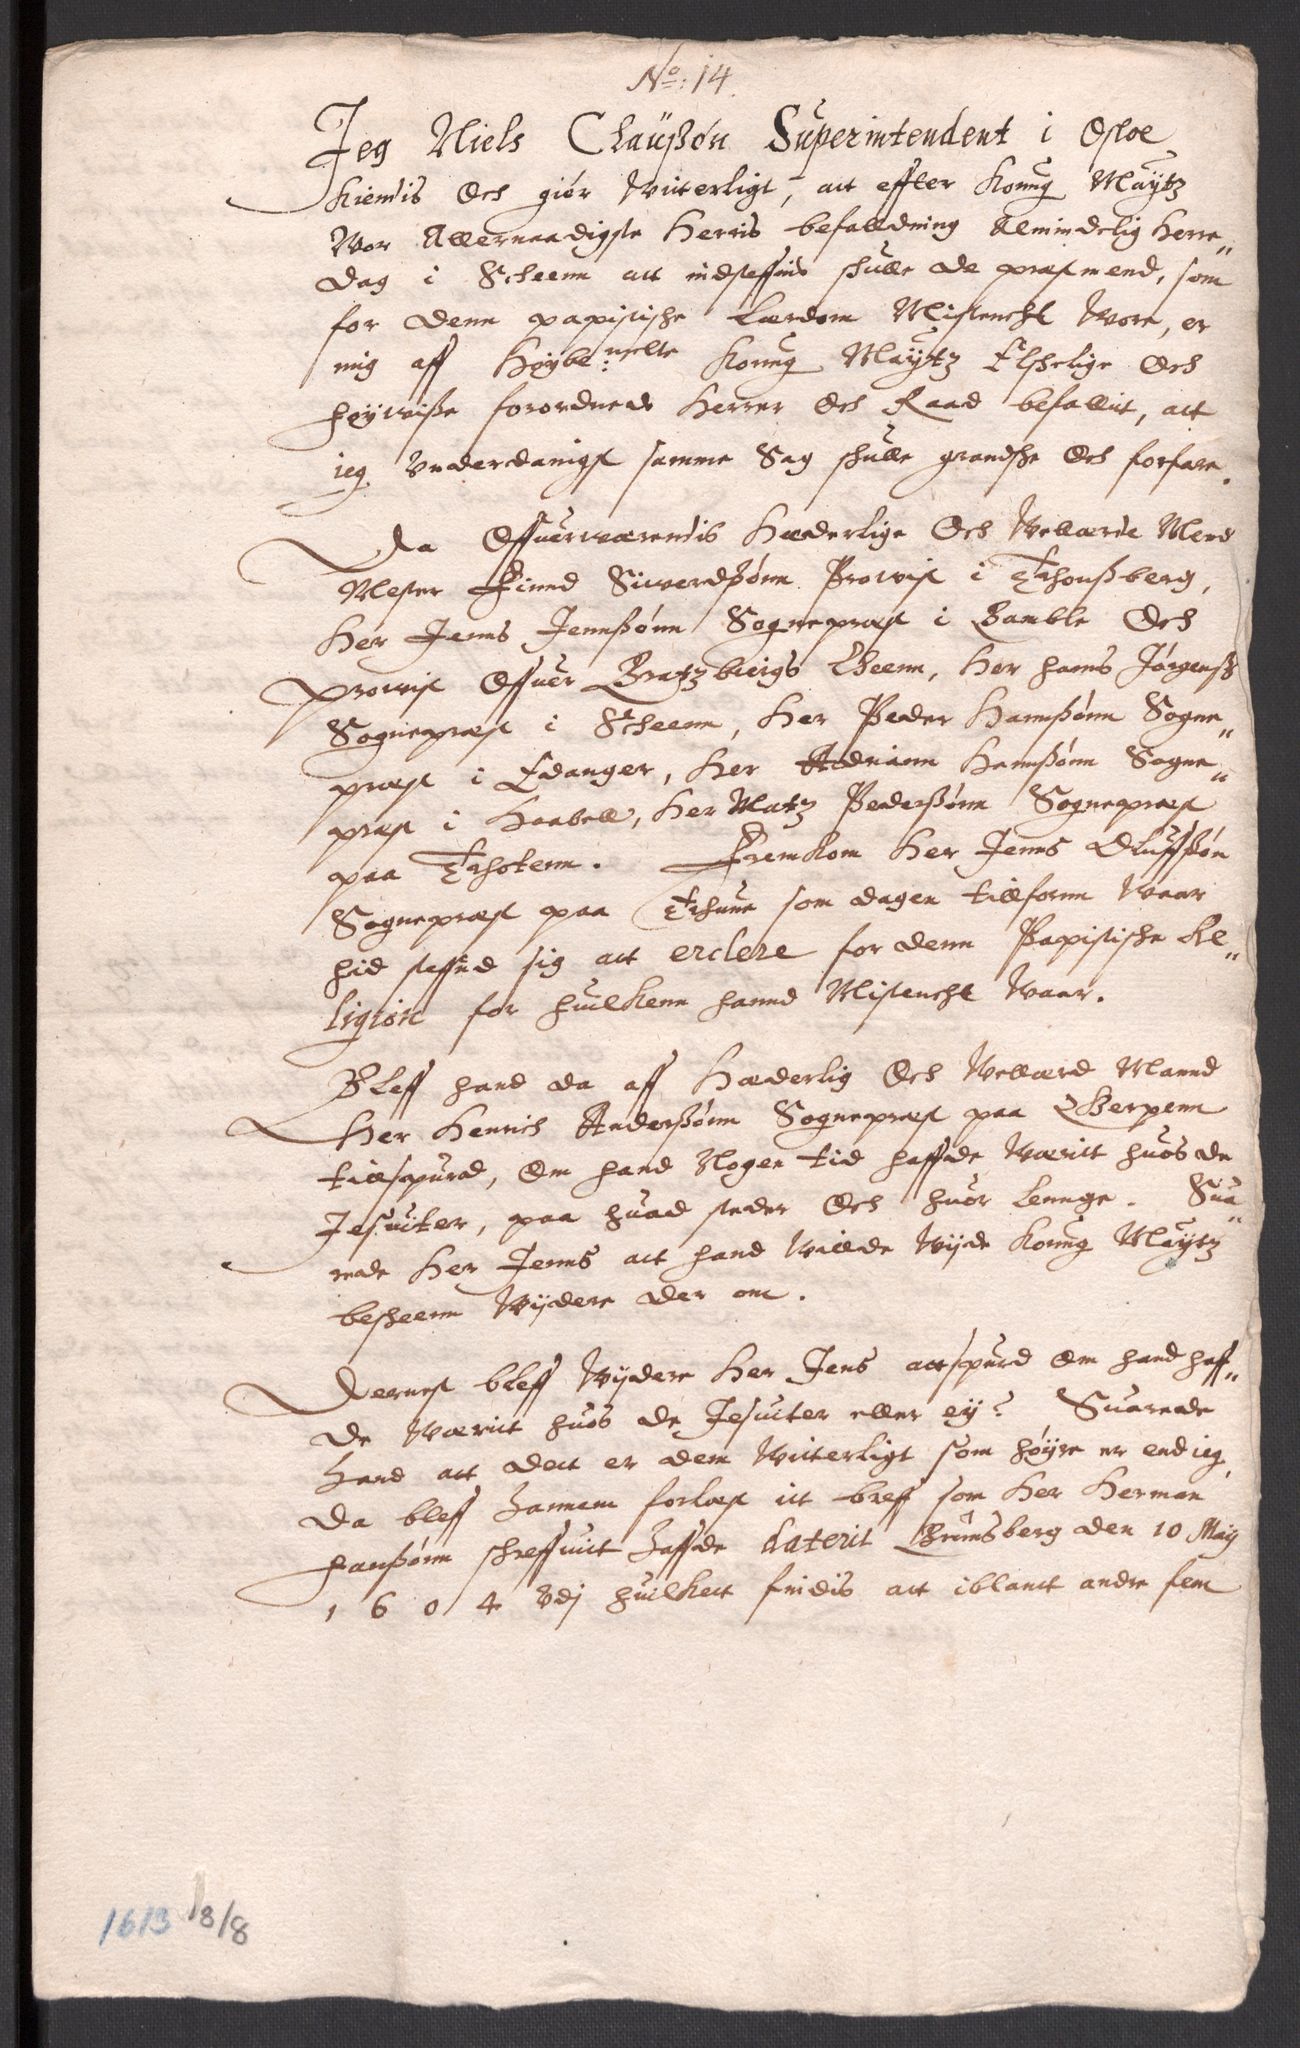 No: 14
Jeg Niels Claüßøn Superintendent i Osloe
Kiendis Och giør Witterligt, att effter Konng Maÿtz
Wor Allernaadigste Herris befalldning Almindelig Herre„
dag i Scheenn att indsteffnis skulle de præstmend, som
for denn papistiske Lærdom Mistencht Wore, er
mig aff Høybe:melte Konng Maÿtz Elskelige Och
høÿwiße forordnede Herrer Och Raad befallit, att
ieg Underdanigst samme Sag skulle grandske Och forfare.
Da Offuerwærendis Hæderlige Och Wellærde Mend
Mester Find Siwerdßønn Prowist i Thonßberg,
Her Jenns Jennßønn Sognepræst i Bamble Och
prowist Offuer Bratzbiergs Lheenn, Her Hanns Jørgenß
Sognepræst i Scheenn, Her Peder Hannßønn Sogne„
præst i Edanger, Her Adriann Hennßønn Sogne„
præst i Haabell, Her Matz Pederßønn Sognepræst
paa Thotenn. Fremkom Her Jenns Oluffßøn
Sognepræst paa Thune som dagen tillfornn Waar
hid steffnd sig att erclere for denn Papistiske Re„
ligion for huilkenn hannd Mistencht Waar.
Bleff hand da aff Hæderlig Och Wellærd Mannd
Her Henrich Anderßønn Sognepræst paa Gerpenn
tillspurd, Om hand Nogen tid haffde Wærit huos de
Jesuiter, paa huad steder Och huor lennge. Sua„
rede Her Jenns att hand Willde Wijde Konng Maÿtz
beskeenn Wijdere der om.
Dernest bleff Wijdere Her Jens attspurd Om hand haff„
de Wærit huos de Jesuiter eller eÿ? Suarede
Hand att dett er dem Witterligt som høÿre er end ieg
Da bleff Hannem forlæst itt breff som Her Herman
Hanßønn schreffuit Haffde daterit Brunsberg den 10 Maij
1604 Udj huilkett findis att iblant andre fem
1613 18/8